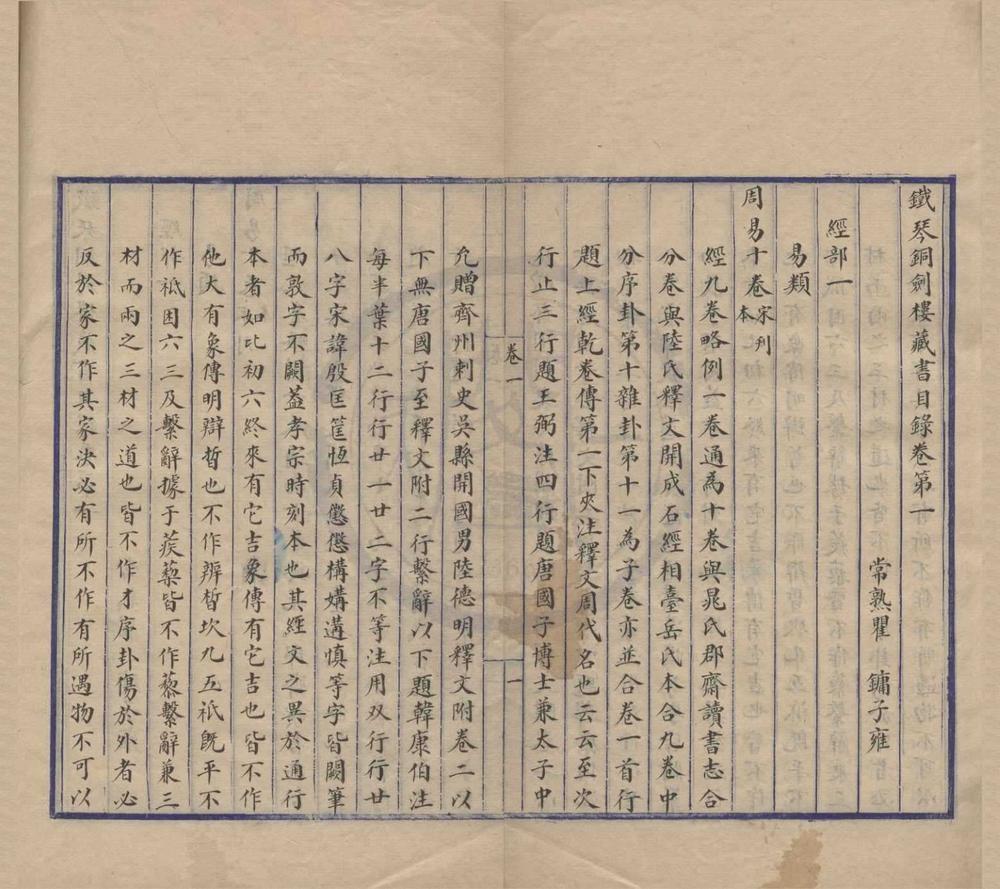 鐵琴銅劍樓藏書目錄卷第一
常熟瞿 鏞子雍
經部一
易類
周易十卷 宋刊本
經九卷略例一卷通為十卷與晁氏郡齋讀書志合
分卷與陸氏釋文開成石經相臺岳氏本合九卷中
分序卦第十雜卦第十一為子卷亦並合卷一首行
題上經乾卷傳第一下夾注釋文周代名也云云至次
行止三行題王弼注四行題唐國子博士兼太子中
卷一
一
允贈齊州刺史吳縣開國男陸德明釋文附卷二以
下無唐國子至釋文附二行繫辭以下題韓康伯注
每半葉十二行行廿一廿二字不等注用双行行廿
八字宋諱殷匡筐恆貞懲㣻構媾遘慎等字皆闕筆
而敦字不闕蓋孝宗時刻本也其經文之異於通行
本者如比初六終來有它吉象傳有它吉也皆不作
他大有象傳明辯晢也不作辨晳坎九五祇既平不
作祗困六三及繫辭據于蒺蔾皆不作藜繫辭兼三
材而兩之三材之道也皆不作才序卦傷於外者必
反於家不作其家決必有所不作有所遇物不可以